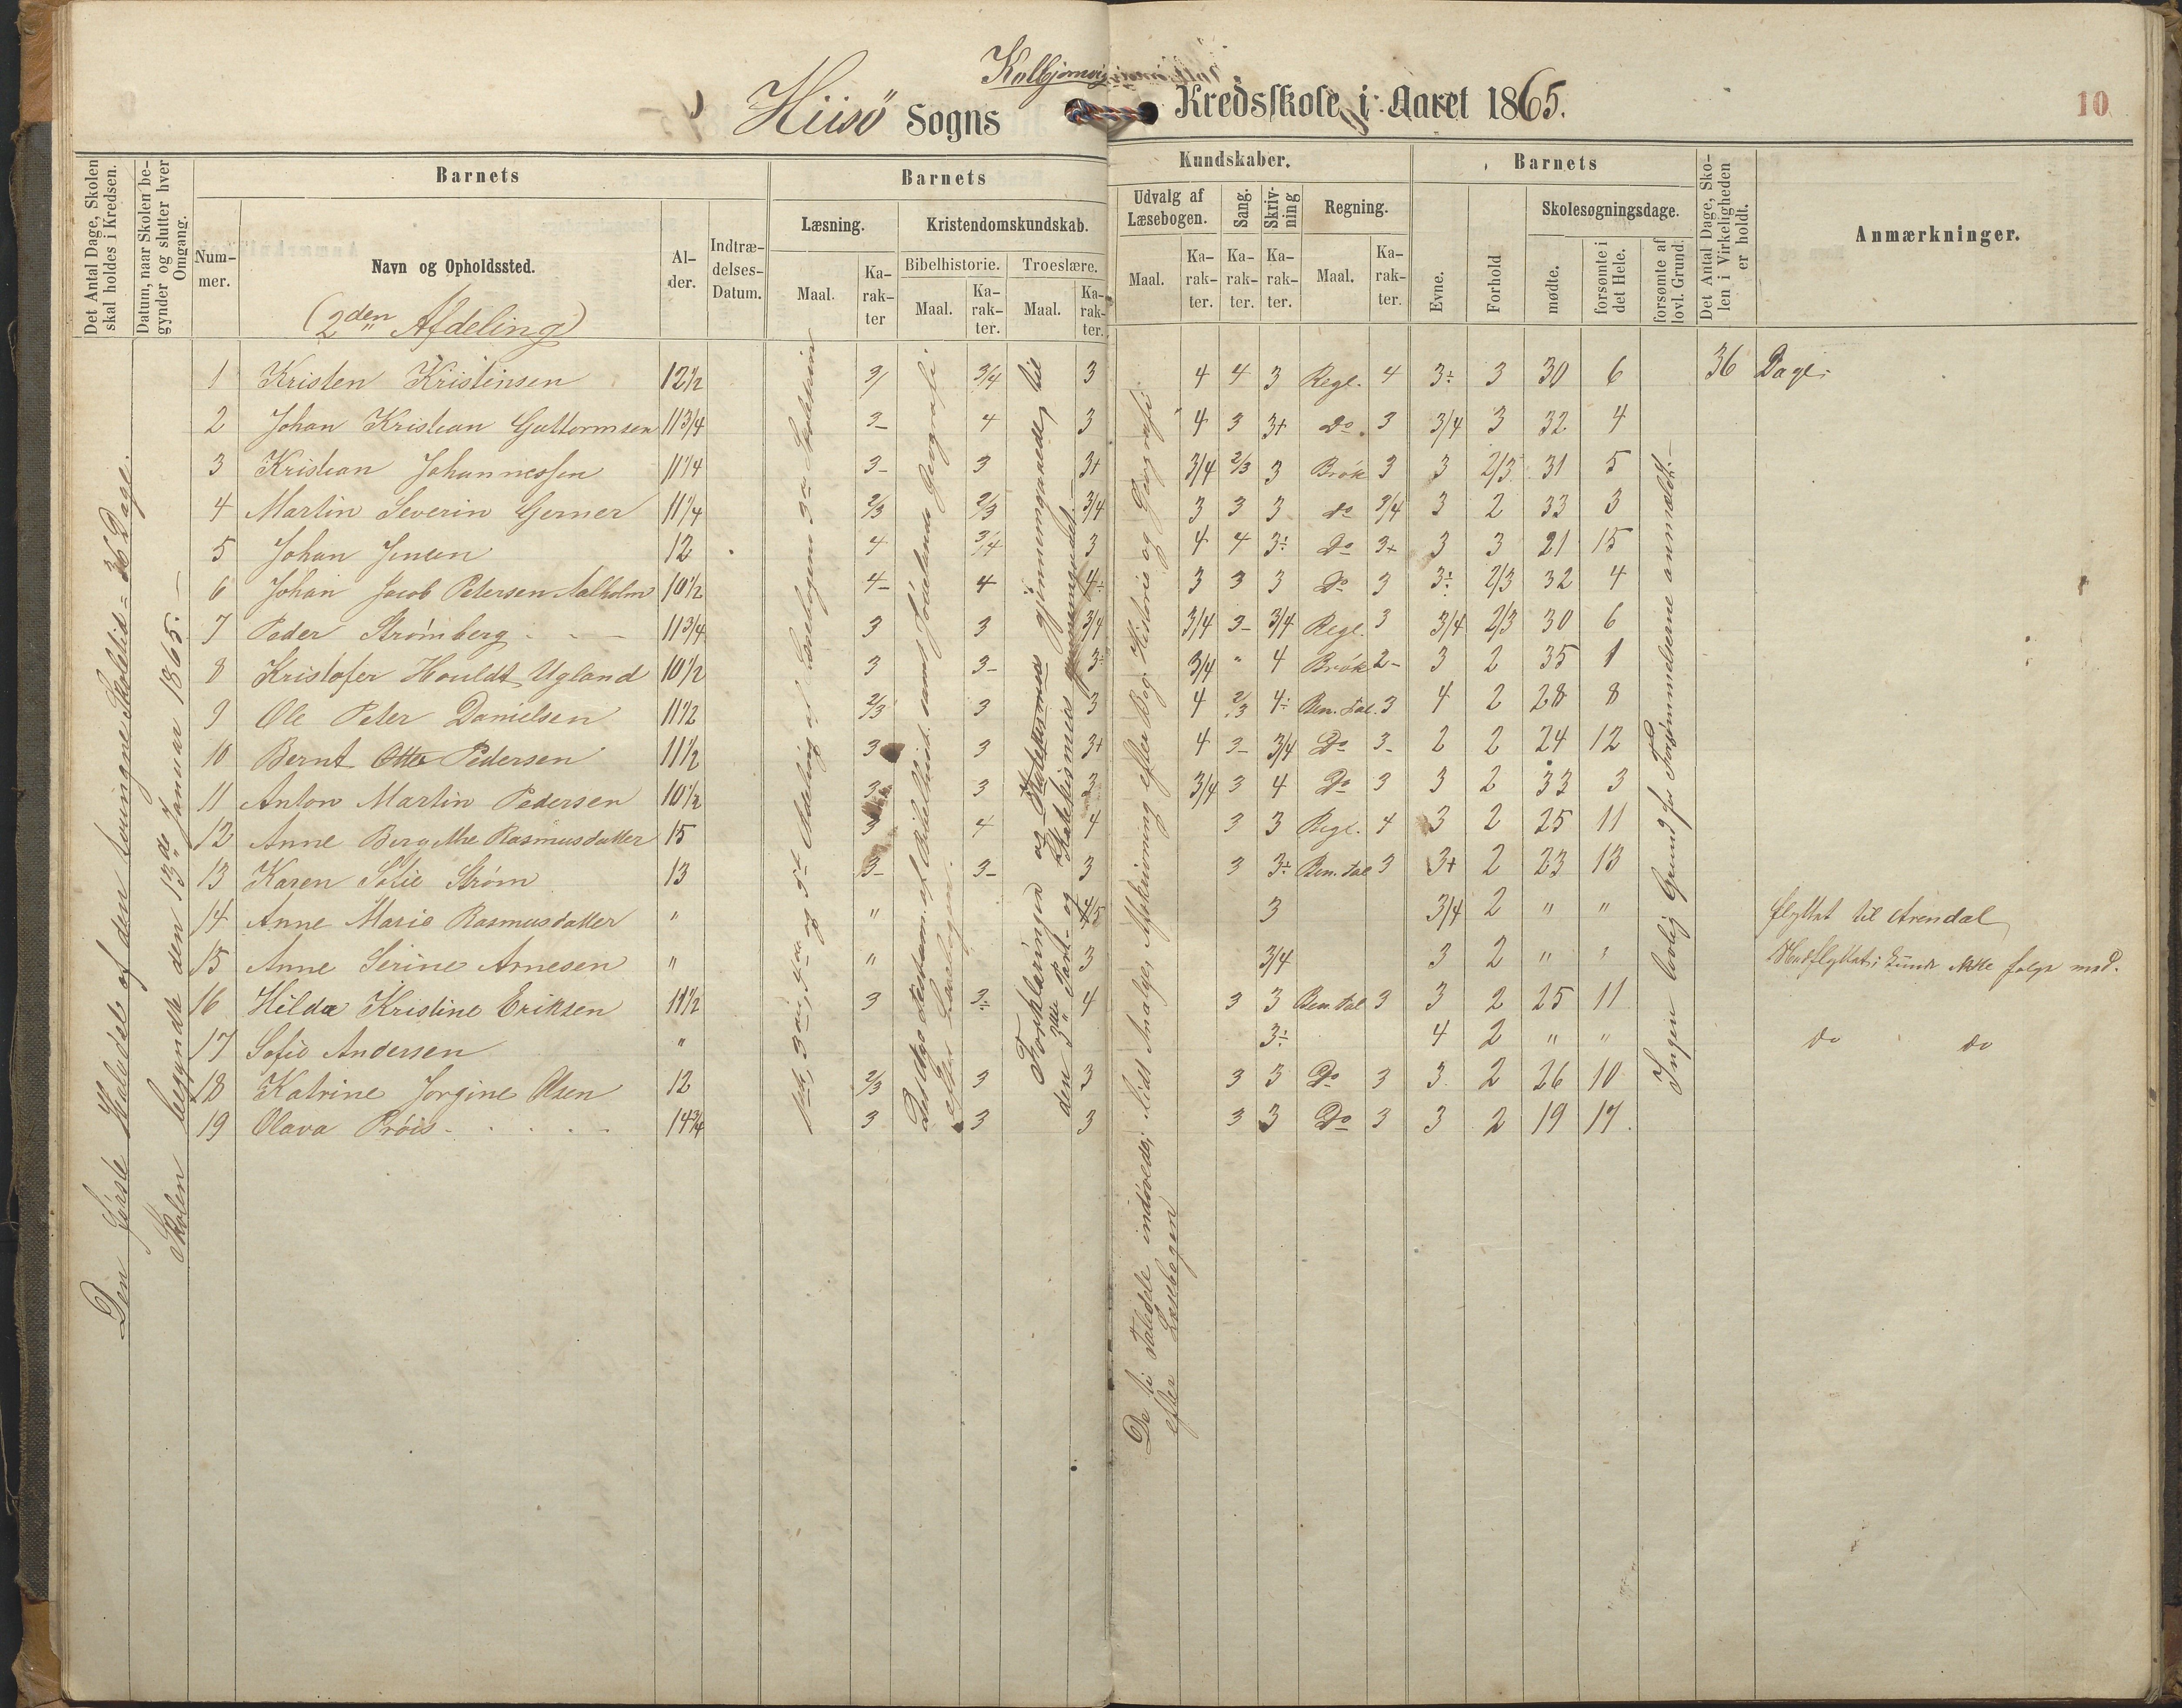 Kolbjørnsvig
Hiisö Sogns Kredsskole i Aaret 1865.
10
Det Antal Dage, Skolen skal holdes i Kredsen.
Datum, naar Skolen begynder og slutter hver Omgang.
Barnets
Barnets
Kundskaber.
Barnets
Det Antal Dage, Skolen i Virkeligheden er holdt.
Anmærkninger.
Nummer.
Navn og Opholdssted.
Alder.
Indtrædelses-Datum.
Læsning.
Kristendomskundskab.
Udvalg af Læsebogen.
Sang.
Skrivning
Regning.
Evne.
Forhold
Skolesøgningsdage.
Maal.
Karakter
Bibelhistorie.
Troeslære.
Maal.
Karakter.
Maal.
Karakter.
Maal.
Karakter.
Karakter.
Karakter.
Maal.
Karakter.
mødte.
forsømte i det Hele.
forsømte af lovl. Grund.
(2den Afdeling)
Den første Halvdel af den tvungne Skoletid = 36 Dage.
Skolen begyndte den 13de Januar 1865. —
1 Kristen Kristensen 12½ 3/ 3/4 3 4 4 3 Regl. 4 3÷ 3 30 6 36 Dage
2 Johan Kristian Guttormsen 11 3/4 3- 4 3 4 3 3+ do 3 3/4 3 32 4
3 Kristian Johannessen 11 1/4 3- 3 3+ 3/4 2/3 3 Brøk 3 3 2/3 31 5
4 Martin Severin Gerner 11 1/4 2/3 2/3 3/4 3 3 3 do 3/4 3 2 33 3
5 Johan Jensen 12 4 3/4 3 4 4 3÷ Do 3+ 3 3 21 15
6 Johan Jacob Petersen Aalholm 10½ 4- 4 4÷ 3 3 3 Do 3 3÷ 2/3 32 4
7 Peder Strömberg - - - 11 3/4 3 3 3/4 3/4 3- 3/4 Regl. 3 3/4 2/3 30 6
8 Kristofer Houldt Ugland 10½ 3 3- 3÷ 3/4 " 4 Brøk 2- 3 2 35 1
9 Ole Peter Danielsen 11½ 2/3 3 3 4 2/3 4÷ Ben. tal. 3 4 2 28 8
10 Bernt Otto Pedersen 11½ 3 3 3+ 4 3- 3/4 Do 3- 2 2 24 12
11 Anton Martin Pedersen 10½ 3 3 3 3/4 3 4 Do 3 3 2 33 3
12 Anne Bergithe Rasmusdatter 15 3 4 4 3 3 Regl. 4 3 2 25 11
13 Karen Sofie Strøm 13 3- 3- 3 3 3÷ Ben. tal 3 3+ 2 23 13
14 Anne Marie Rasmusdatter " " 4/5 3 3/4 2 " " flyttet til Arendal
15 Anne Serine Arnesen " " 3 3/4 3 2 " " Nedflyttet; kunde ikke følge med.
16 Hilda Kristine Eriksen 11½ 3 3÷ 4 3 3 Ben. tal 3 3 2 25 11
17 Sofie Andersen " 3÷ 4 2 " " do do
18 Katrine Jorgine Olsen 12 2/3 3 3 3 3 Do 3 3 2 26 10
19 Olava Prøis - . . . . 14 3/4 3 3 3 3 3 Do 3 3 2 19 17.
1ste, 3die, 4de og 5te Afdeling af Læsebogens 3de Skoletrin
Det nye Testam. af Bibelhist. samt Jødelands Geografi
efter Læsebogen.
Forklaringen og Katekismus gjennemgaaede til
den 3die Part og Katekismus gjennemgaaet. —
De ti Taledele indøvede; lidt Analyse, Afskrivning efter Bog. Historie og Geografi
efter Læsebogen
Ingen lovlig Grund for Forsømmelserne anmeldt. —